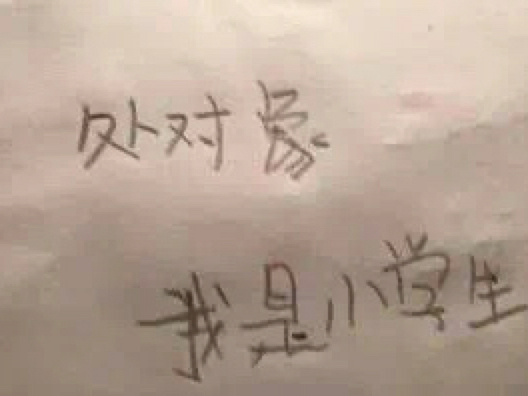 处对象
我是小学生